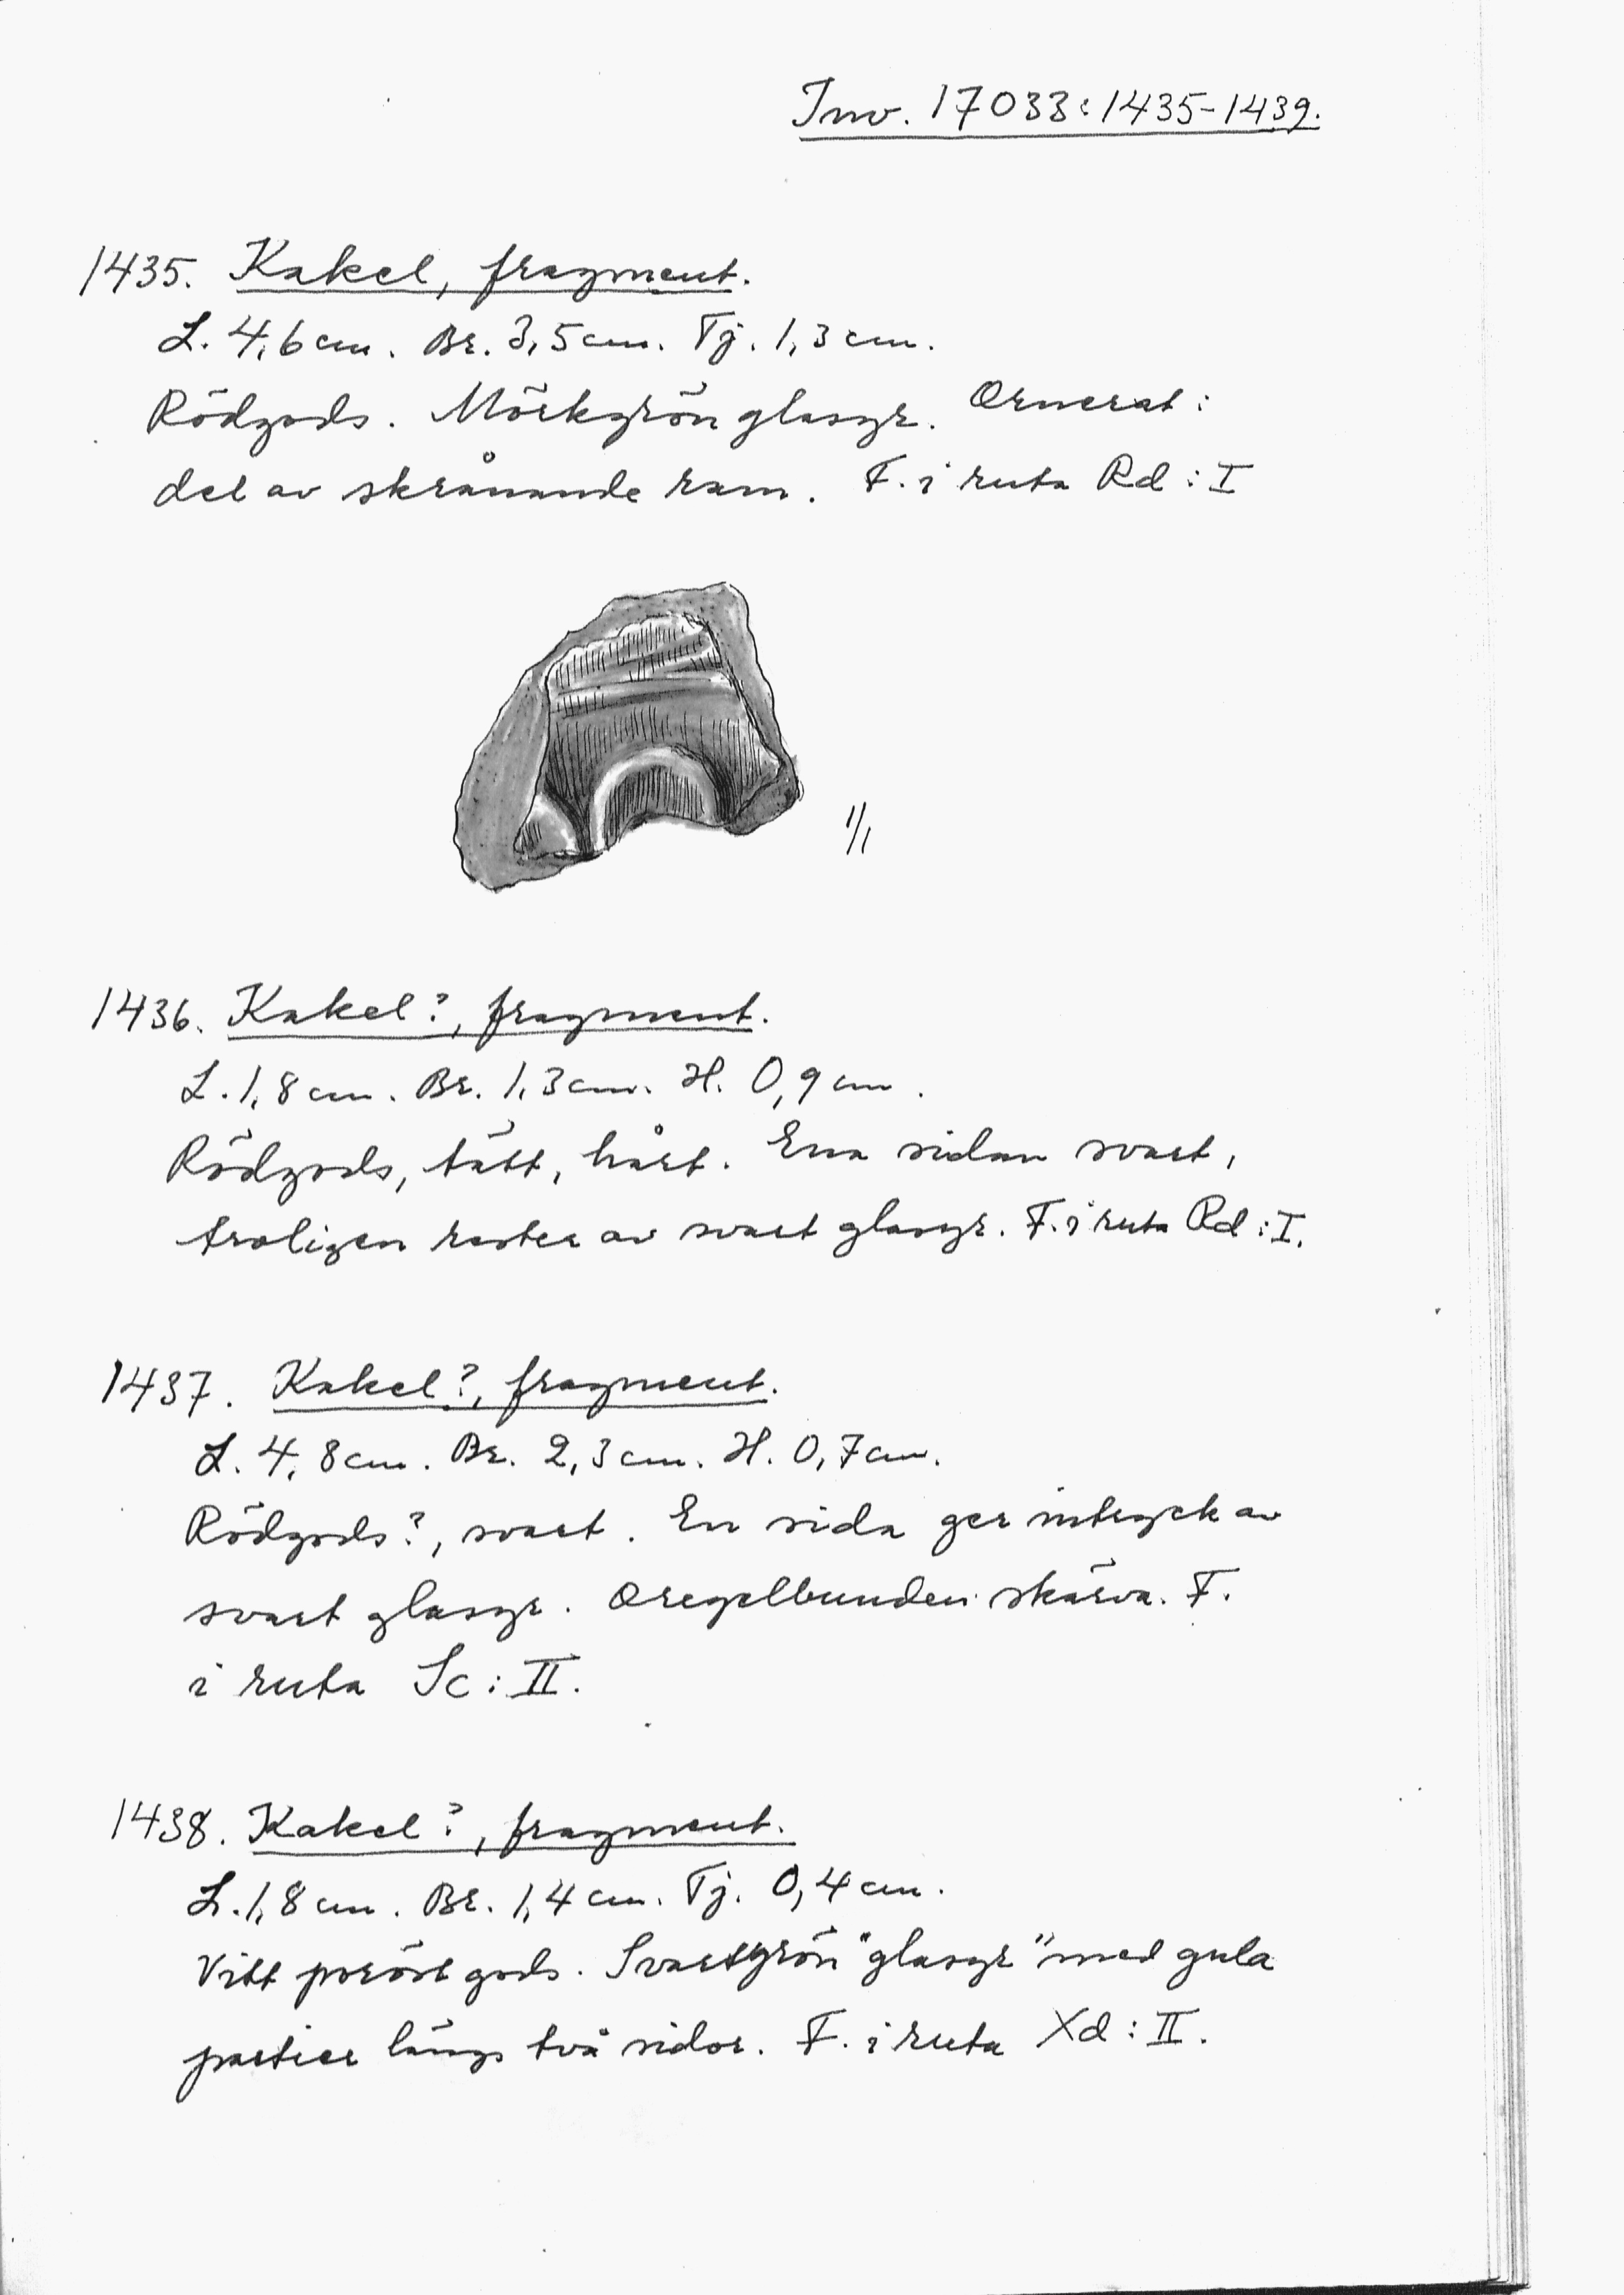 Inv. 17033:1435-1439.
1435. Kakel, fragment.
L. 4,6 cm. Br. 3,5 cm. Tj. 1,3 cm.
Rödgods. Mörkgrön glasyr. Ornerat:
del av skrånande ram. F. i ruta Rd:I
1/1
1436. Kakel?, fragment.
L. 1,8 cm. Br. 1,3 cm. H. 0,9 cm.
Rödgods, tätt, hårt. Ena sidan svart,
troligen rester av svart glasyr. F. i ruta Rd:I.
1437. Kakel?, fragment.
L. 4,8 cm. Br. 2,3 cm. H. 0,7 cm.
Rödgods?, svart. En sida ger intryck av
svart glasyr. Oregelbunden skärva. F.
i ruta Sc:II.
1438. Kakel?, fragment.
L. 1,8 cm. Br. 1,4 cm. Tj. 0,4 cm.
Vitt poröst gods. Svartgrön "glasyr" med gula
partier längs två sidor. F. i ruta Xd:II.